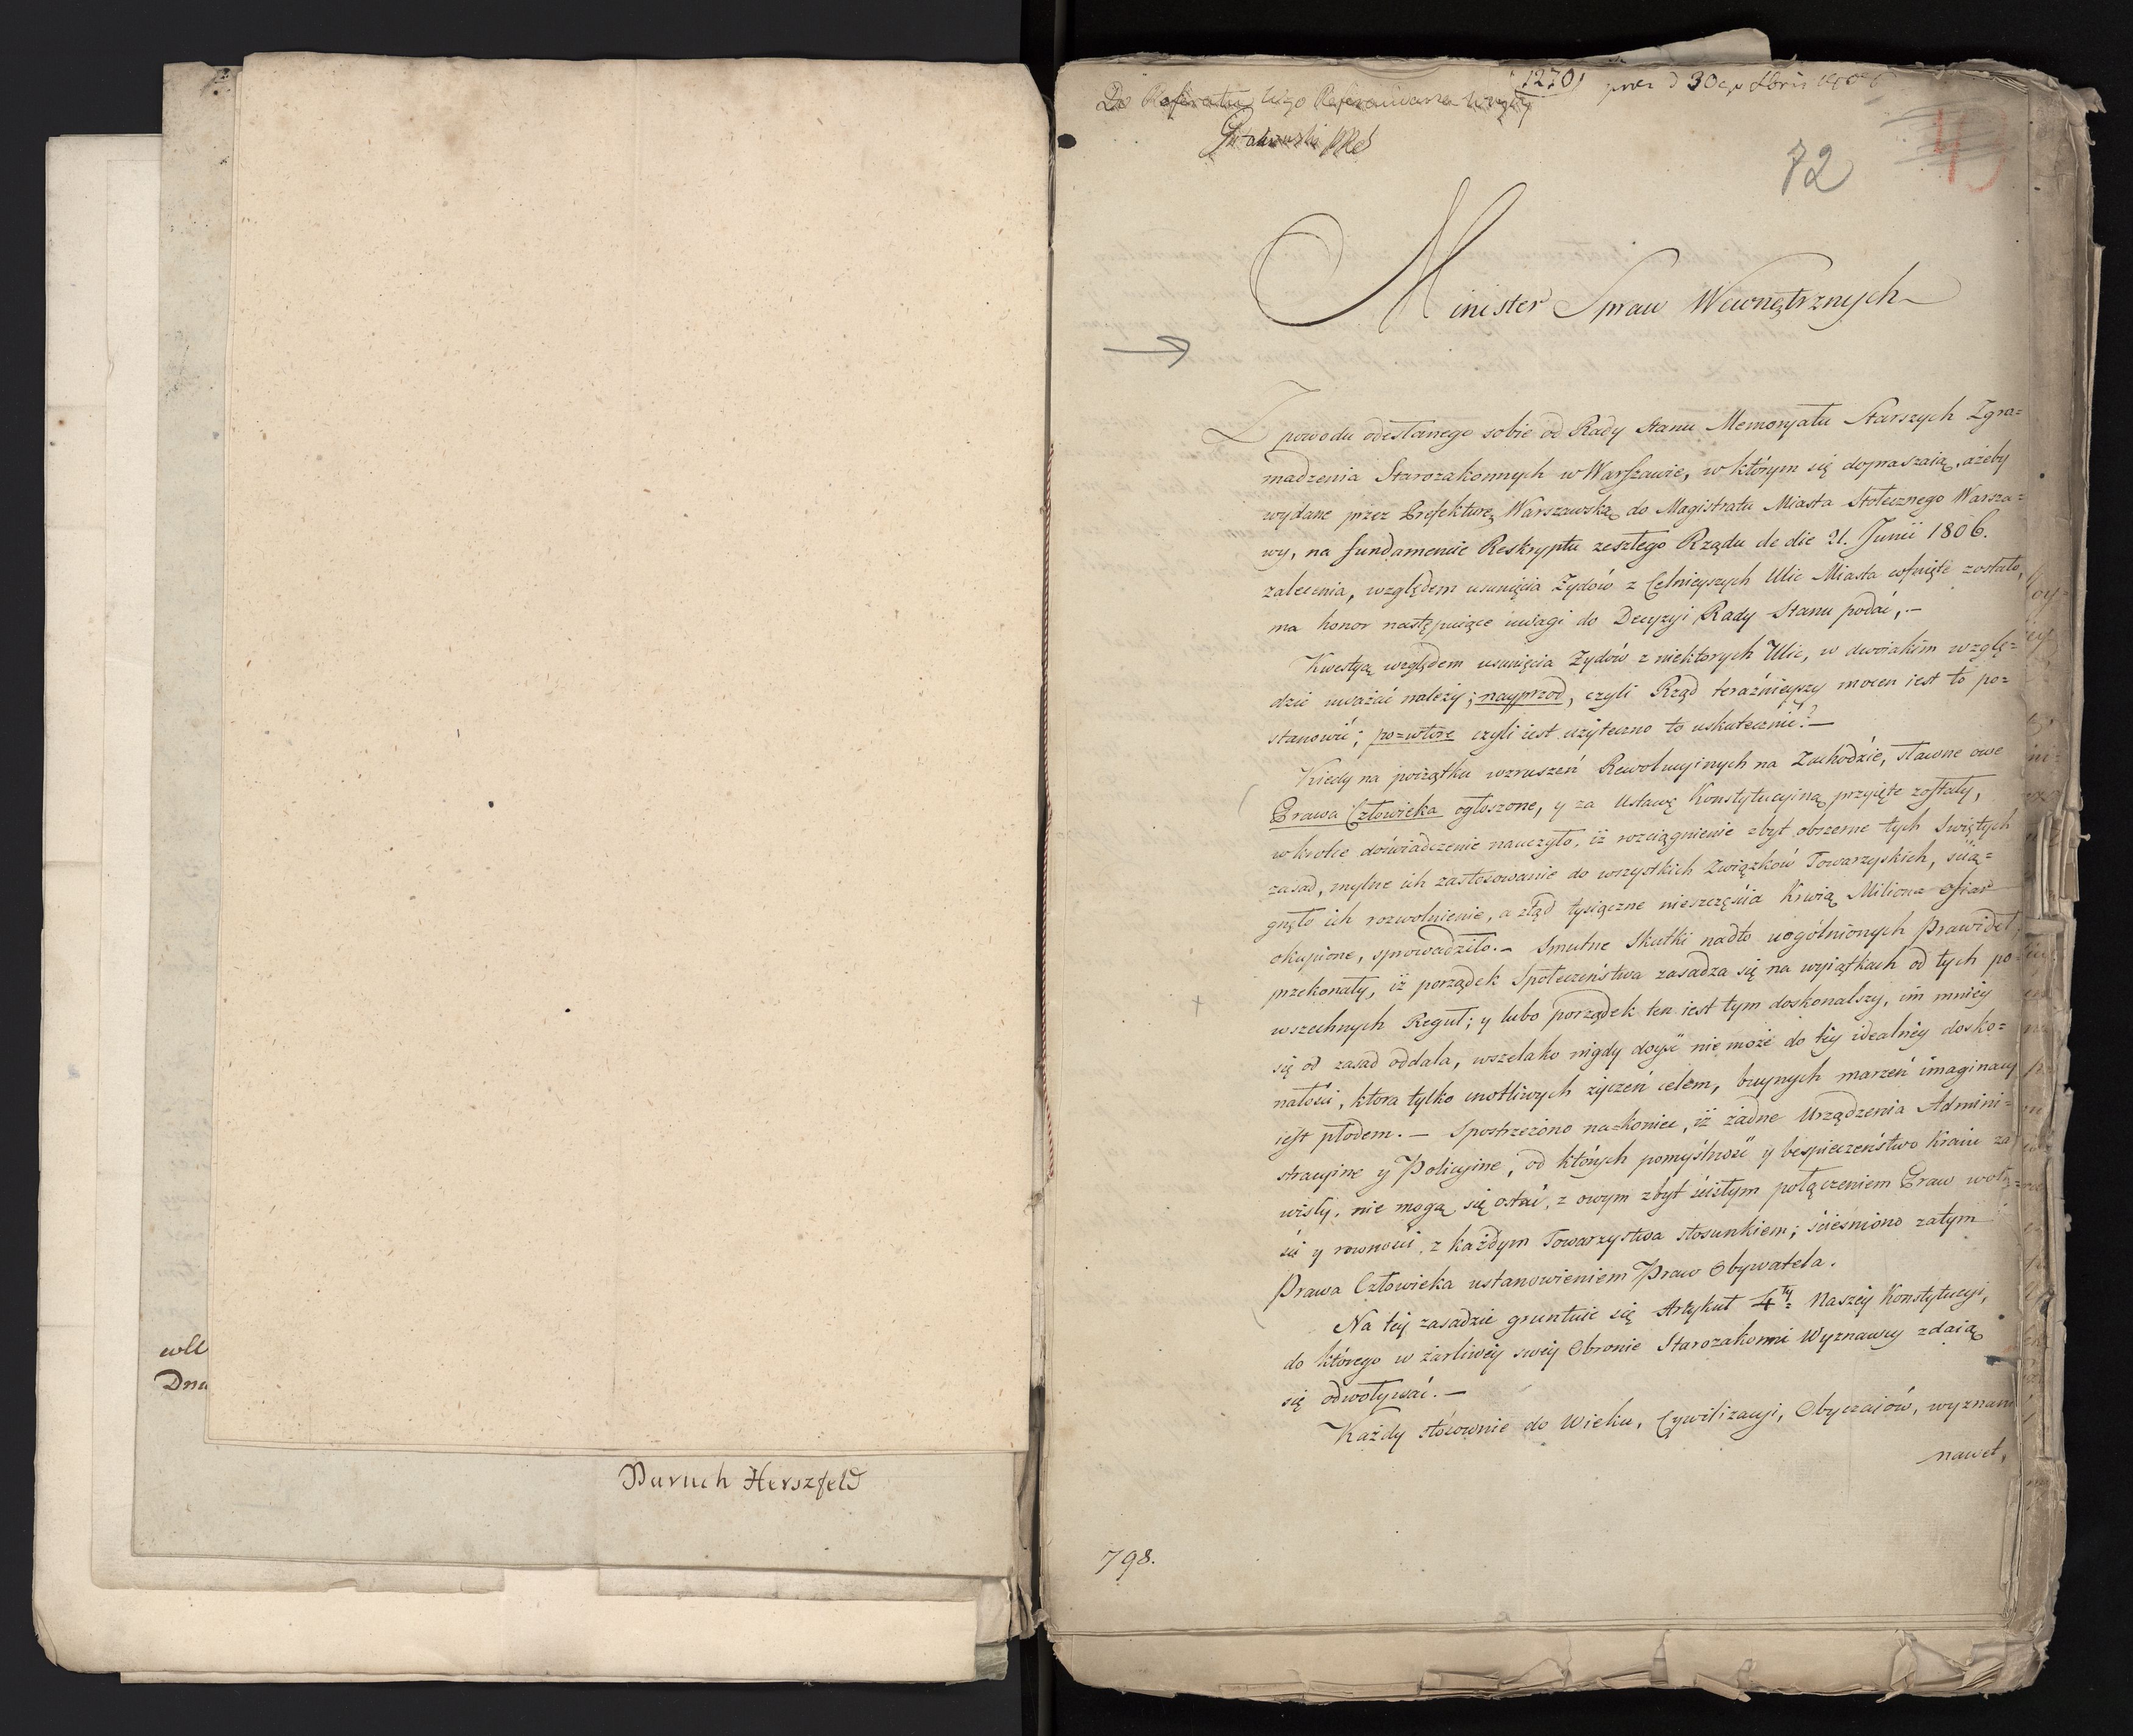 wll
Dnu
Baruch Herszfeld
1270
30
72
Minister Spraw Wewnętrznych
Z powodu odesłanego sobie od Rady Stanu Memoryału Starszych Zgro=
madzenia Starozakonnych w Warszawie, w którym się dopraszaią, ażeby
wydane przez Prefekturę Warszawską do Magistratu Miasta Stołecznego Warsza=
wy, na fundamencie Reskryptu zeszłego Rządu de die 21. Junii 1806.
zalecenia, względem usunięcia Żydów z Celnieyszych Ulic Miasta cofnięte zostało,
ma honor następuiące uwagi do Decyzyi Rady Stanu podać,.—
Kwestyą względem usunięcia Żydów z niektorych Ulic, w dwoiakim wzglę=
dzie uważać należy; nayprzod, czyli Rząd teraźnieyszy mocen iest to po=
stanowić; po=wtore czyli iest użyteczno to uskutecznić?—
Kiedy na początku wzruszeń Rewolucyinych na Zachodzie, sławne owe
Prawa Człowieka ogłoszone, y za Ustawę Konstytucyiną przyięte zostały,
wkrotce doświadczenie nauczyło, iż rozciągnienie zbyt obszerne tych Swiętych
zasad, mylne ich zastosowanie do wszystkich Związków Towarzyskich, scią=
gnęło ich rozwolnienie, a ztąd tysiączne nieszczęścia Krwią Miliona ofiar
okupione, sprowadziło.— Smutne Skutki nadto uogólnionych Prawideł,
przekonały, iż porządek Społeczeństwa zasadza się na wyiątkach od tych po
wszechnych Reguł; y lubo porządek ten iest tym doskonalszy, im mniey
się od zasad oddala, wszelako nigdy doyść nie może do tey idealney dosko=
nałości, ktora tylko cnotliwych życzeń celem, buynych marzeń imaginacyi
iest płodem.— Spostrzeżono na=koniec, iż żadne Urządzenia Admini=
stracyine y Policyine, od których pomyślność y bespieczeństwo Kraiu za
wisły, nie mogą się ostać, z owym zbyt ścisłym połączeniem Praw wolno=
ści y rowności, z każdym Towarzystwa stosunkiem; ściesniono zatym
Prawa Człowieka ustanowieniem Praw Obywatela.
Na tey zasadzie gruntuie się Artykuł 4ty= Naszey Konstytucyi,
do którego w żarliwey swey Obronie Starozakonni Wyznawcy zdaią
się odwoływać.—
Każdy stósownie do Wieku, Cywilizacyi, Obyczaiów, wyznani
nawet,
798.